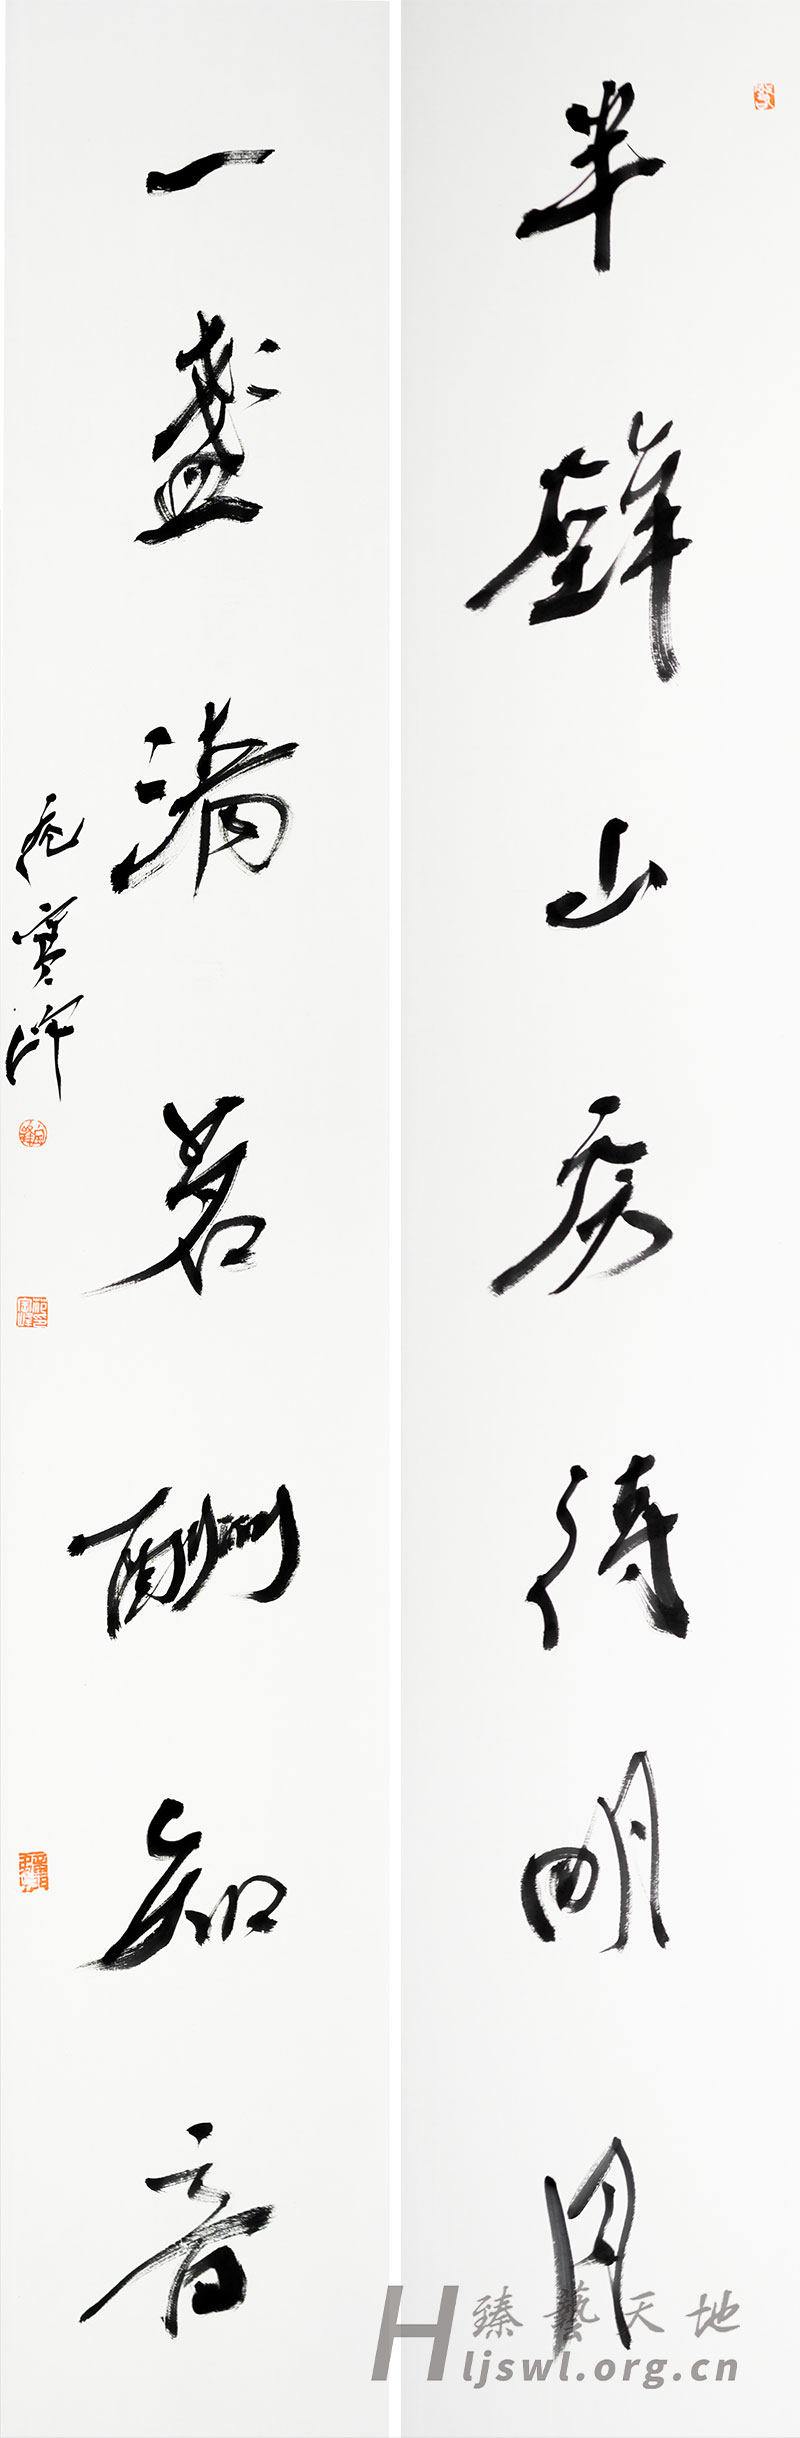 半壁山房待明月
一盏清茗酬知音
寒峰
臻藝天地
Hljswl.org.cn